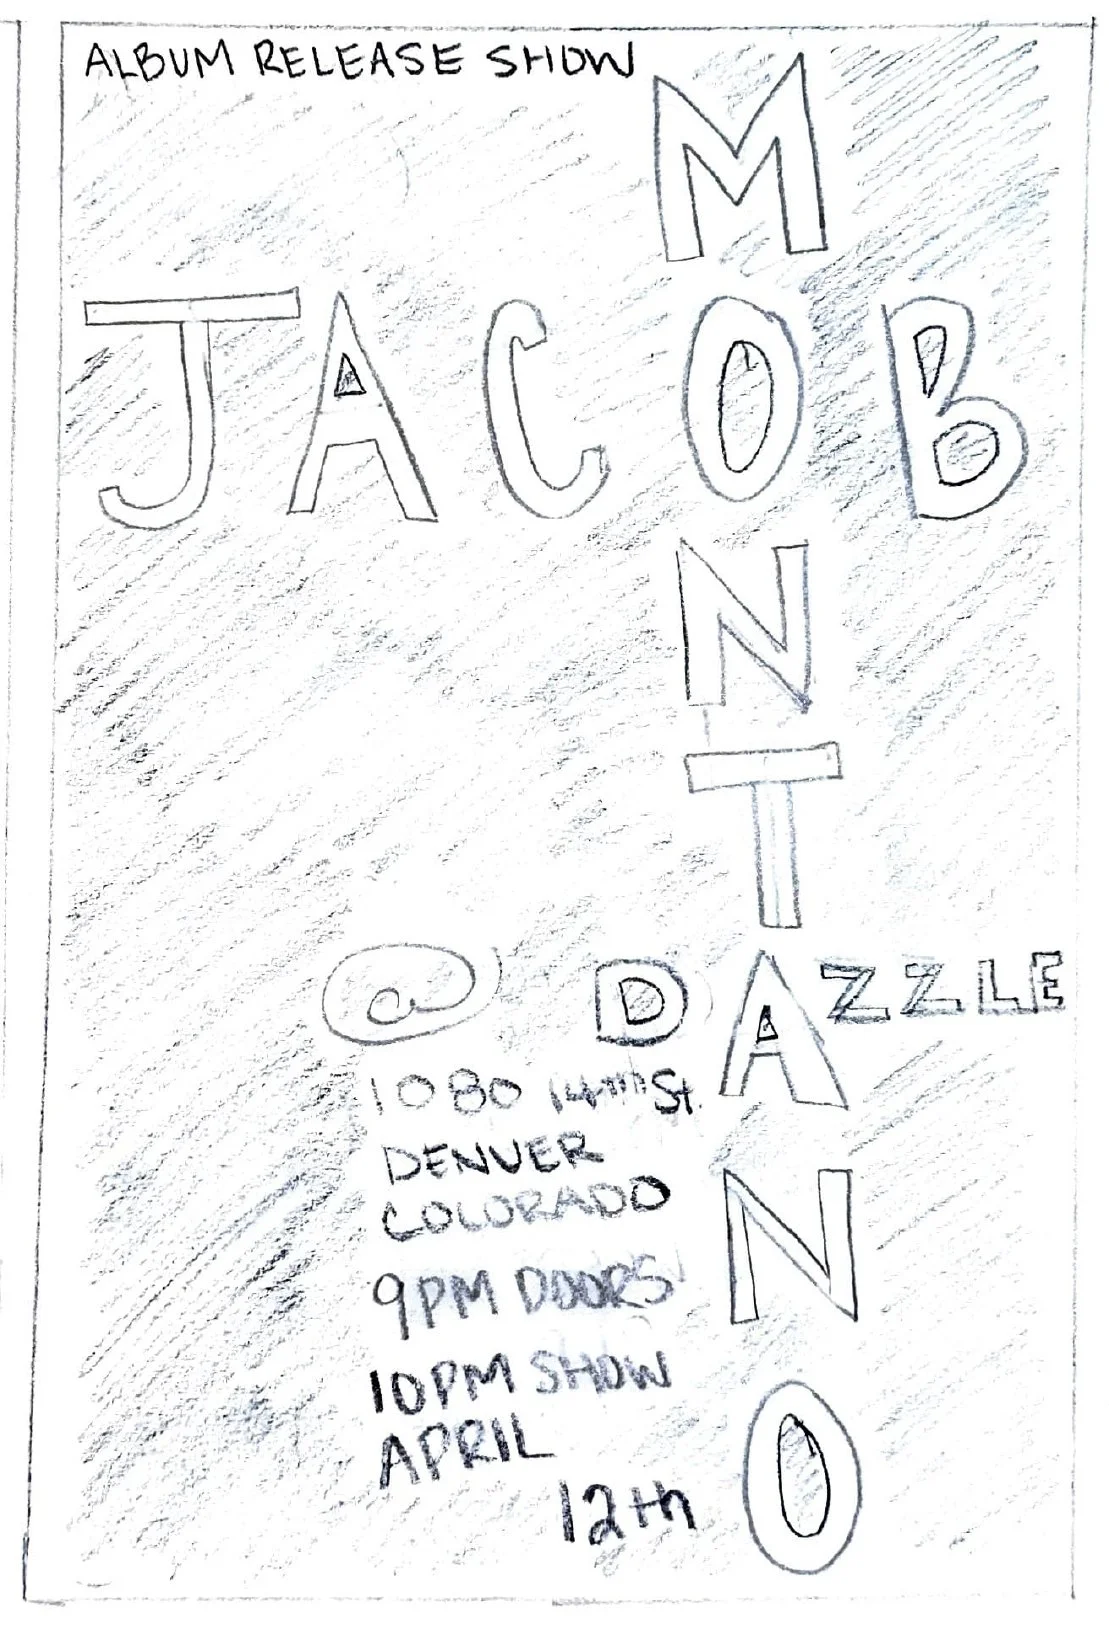 ALBUM RELEASE SHOW
JACOB
MONTANO
@ DAZZLE
1080 14TH St.
DENVER
COLORADO
9PM DOORS
10PM SHOW
APRIL
12th